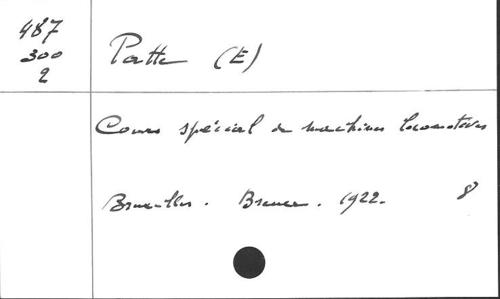 487
300
2
Patte (E)
Cours spécial de machines locomotives
Bruxelles. 1922. 8